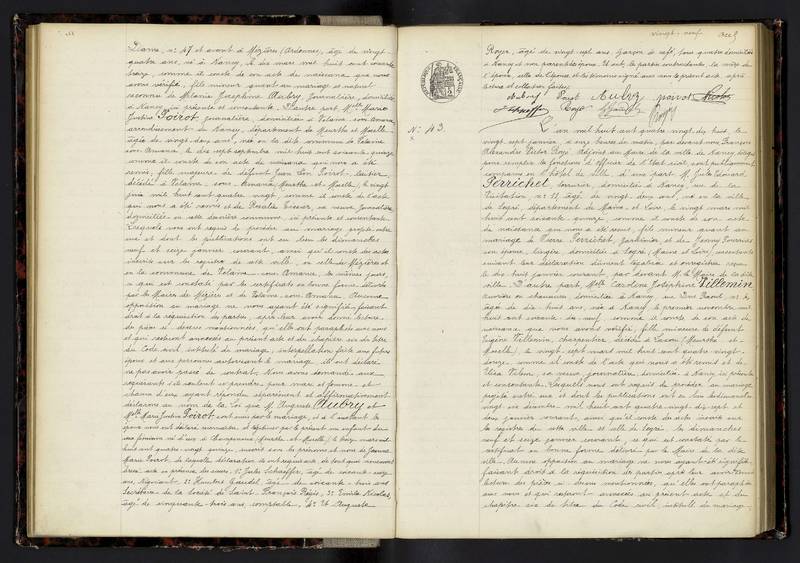 Diane, n° 47 et avant à Mézières (Ardennes), âgé de vingt
quatre ans, né à Nancy, le dix mars mil huit cent soixante
treize, comme il conste de son acte de naissance que nous
avons vérifié, fils mineur quant au mariage et naturel
reconnu de Mélanie Joséphine Aubry, journalière, domiciliée
à Nancy, ici présente et consentante. D'autre part Melle Marie
Justine Poirot, journalière, domiciliée à Velaine-sous-Amance,
arrondissement de Nancy, département de Meurthe et Moselle,
âgée de vingt deux ans, née en la dite commune de Velaine
sous Amance, le dix sept septembre mil huit cent soixante quinze,
comme il conste de son acte de naissance qui nous a été
remis; fille majeure de défunt Jean Léon Poirot,
décédé à Velaine-sous-Amance (Meurthe et Moselle), le vingt
juin mil huit cent quatre vingt, comme il conste de l'acte
qui nous a été remis et de Rosalie sa veuve, journalière,
domiciliée en cette dernière commune, ici présente et consentante.
Lesquels nous ont requis de procéder au mariage projeté entre
eux et dont les publications ont eu lieu les dimanches
neuf et seize janvier courant, ainsi qu'il conste des actes
inscrits sur les registres de cette ville, en celle de Mézières et
en la commune de Velaine-sous-Amance, les mêmes jours,
ce qui est constaté par les certificats en bonne forme délivrés
par les Maires de Mézières et de Velaine-sous-Amance. Aucune
opposition au mariage ne nous ayant été signifiée, faisant
droit à la réquisition des parties, après leur avoir donné lecture
des pièces ci-dessus mentionnées, qu'elles ont paraphées avec nous
et qui resteront annexées au présent acte et du chapitre six du titre
du Code civil, intitulé du mariage, interpellation faite aux futurs
époux et aux personnes autorisant le mariage, ils ont déclaré
ne pas avoir passé de contrat. Nous avons demandé aux
requérants s'ils veulent se prendre pour mari et femme et
chacun d'eux ayant répondu séparément et affirmativement
déclarons au nom de la Loi que M. Auguste Aubry et
Melle Marie Justine Poirot sont unis par le mariage, et à l'instant les
époux nous ont déclaré reconnaître et légitimer par le présent un enfant du
sexe féminin né d'eux à Champenoux (Meurthe et Moselle), le treize mars mil
huit cent quatre vingt quinze, inscrit sous les prénoms et nom de Jeanne
Marie Poirot, de laquelle déclaration ils ont requis acte, de tout quoi nous avons
dressé acte en présence des sieurs, 1° Jules Schaeffer, âgé de soixante
ans, négociant, 2° Gaudel, âgé de soixante-trois ans,
Secrétaire de la Société de Saint François Régis, 3° Emile Nicolas,
âgé de cinquante-trois ans, comptable, 4° Et Auguste
vingt-neuf
Royer, âgé de vingt sept ans, garçon de café, tous quatre domiciliés
à Nancy et non parents des époux. Et ont, les parties contractantes, la mère de
l'époux, celle de l'épouse et les témoins signé avec nous le présent acte, après
lecture et collation faites.
Aubry Poirot Aubry poirot
Schaeffer Royer
N° 43.
L'an mil huit cent quatre vingt dix huit, le
vingt sept janvier, à onze heures du matin, par devant nous François
Alexandre Victor adjoint au Maire de la ville de Nancy, délégué
pour remplir les fonctions d'officier de l'état civil, sont publiquement
comparus en l'hôtel de ville, d'une part M. Jules Edouard
Perrichet, serrurier, domicilié à Nancy, rue de la
Visitation n° 11, âgé de vingt deux ans, né en la ville
de Segré, département de Maine et Loire, le vingt mars mil
huit cent soixante quinze, comme il conste de son acte
de naissance qui nous a été remis, fils mineur quant au
mariage de Pierre Perrichet, jardinier, et de Jenny Fournier
son épouse, lingère, domiciliés à Segré (Maine et Loire), consentants
suivant leur déclaration dûment légalisée et enregistrée, reçue
le dix huit janvier courant, par devant M. le Maire de la dite
ville. D'autre part, Melle Caroline Joséphine Villemin
ouvrière en chaussures, domiciliée à Nancy, rue n° 2,
âgée de dix-huit ans, née à Nancy le premier novembre mil
huit cent soixante dix neuf, comme il conste de son acte de
naissance que nous avons vérifié, fille mineure de défunt
Eugène Villemin, charpentier, décédé à Laxou (Meurthe et
Moselle), le vingt sept mars mil huit cent quatre vingt
comme il conste de l'acte qui nous a été remis et de
Eliza sa veuve, journalière, domiciliée à Nancy, ici présente
et consentante. Lesquels nous ont requis de procéder au mariage
projeté entre eux et dont les publications ont eu lieu les dimanches
vingt six décembre mil huit cent quatre vingt dix sept et
deux janvier courant, ainsi qu'il conste des actes inscrits sur
les registres de cette ville et celle de Segré les dimanches
neuf et seize janvier courant, ce qui est constaté par le
certificat en bonne forme délivré par le Maire de la dite
ville. Aucune opposition au mariage ne nous ayant été signifiée,
faisant droit à la réquisition des parties après leur avoir donné
lecture des pièces ci-dessus mentionnées, qu'elles ont paraphées
avec nous et qui resteront annexées au présent acte et du
chapitre six du titre du Code civil, intitulé du mariage,